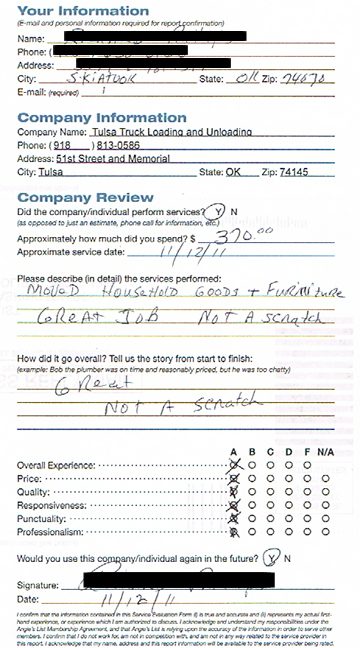 Your Information
(E-mail and personal information required for report confirmation)
Name:
Phone: (
Address:
City: SKIATOOK State: OK Zip: 74070
E-mail: (required)
Company Information
Company Name: Tulsa Truck Loading and Unloading
Phone: (918 ) 813-0586
Address: 51st Street and Memorial
City: Tulsa State: OK Zip: 74145
Company Review
Did the company/individual perform services? Y N
(as opposed to just an estimate, phone call for information, etc.)
Approximately how much did you spend? $ 370.00
Approximate service date: 11/12/11
Please describe (in detail) the services performed:
MOVED HOUSEHOLD GOODS + FURINITURE
GREAT JOB NOT A scratch
How did it go overall? Tell us the story from start to finish:
(example: Bob the plumber was on time and reasonably priced, but he was too chatty)
GReat
NOT A scratch
A B C D F N/A
Overall Experience:
Price:
Quality:
Responsiveness:
Punctuality:
Professionalism:
Would you use this company/individual again in the future? Y N
Signature:
Date: 11/12/11
I confirm that the information contained in this Service Evaluation Form (i) is true and accurate and (ii) represents my actual first-
hand experience, or experience which I am authorized to discuss. I acknowledge and understand my responsibilities under the
Angie's List Membership Agreement, and that Angie's List is relying upon the accuracy of the information in order to serve other
members. I confirm that I do not work for, am not in competition with, and am not in any way related to the service provider in
this report. I acknowledge that my name, address and this report information will be available to the service provider being rated.